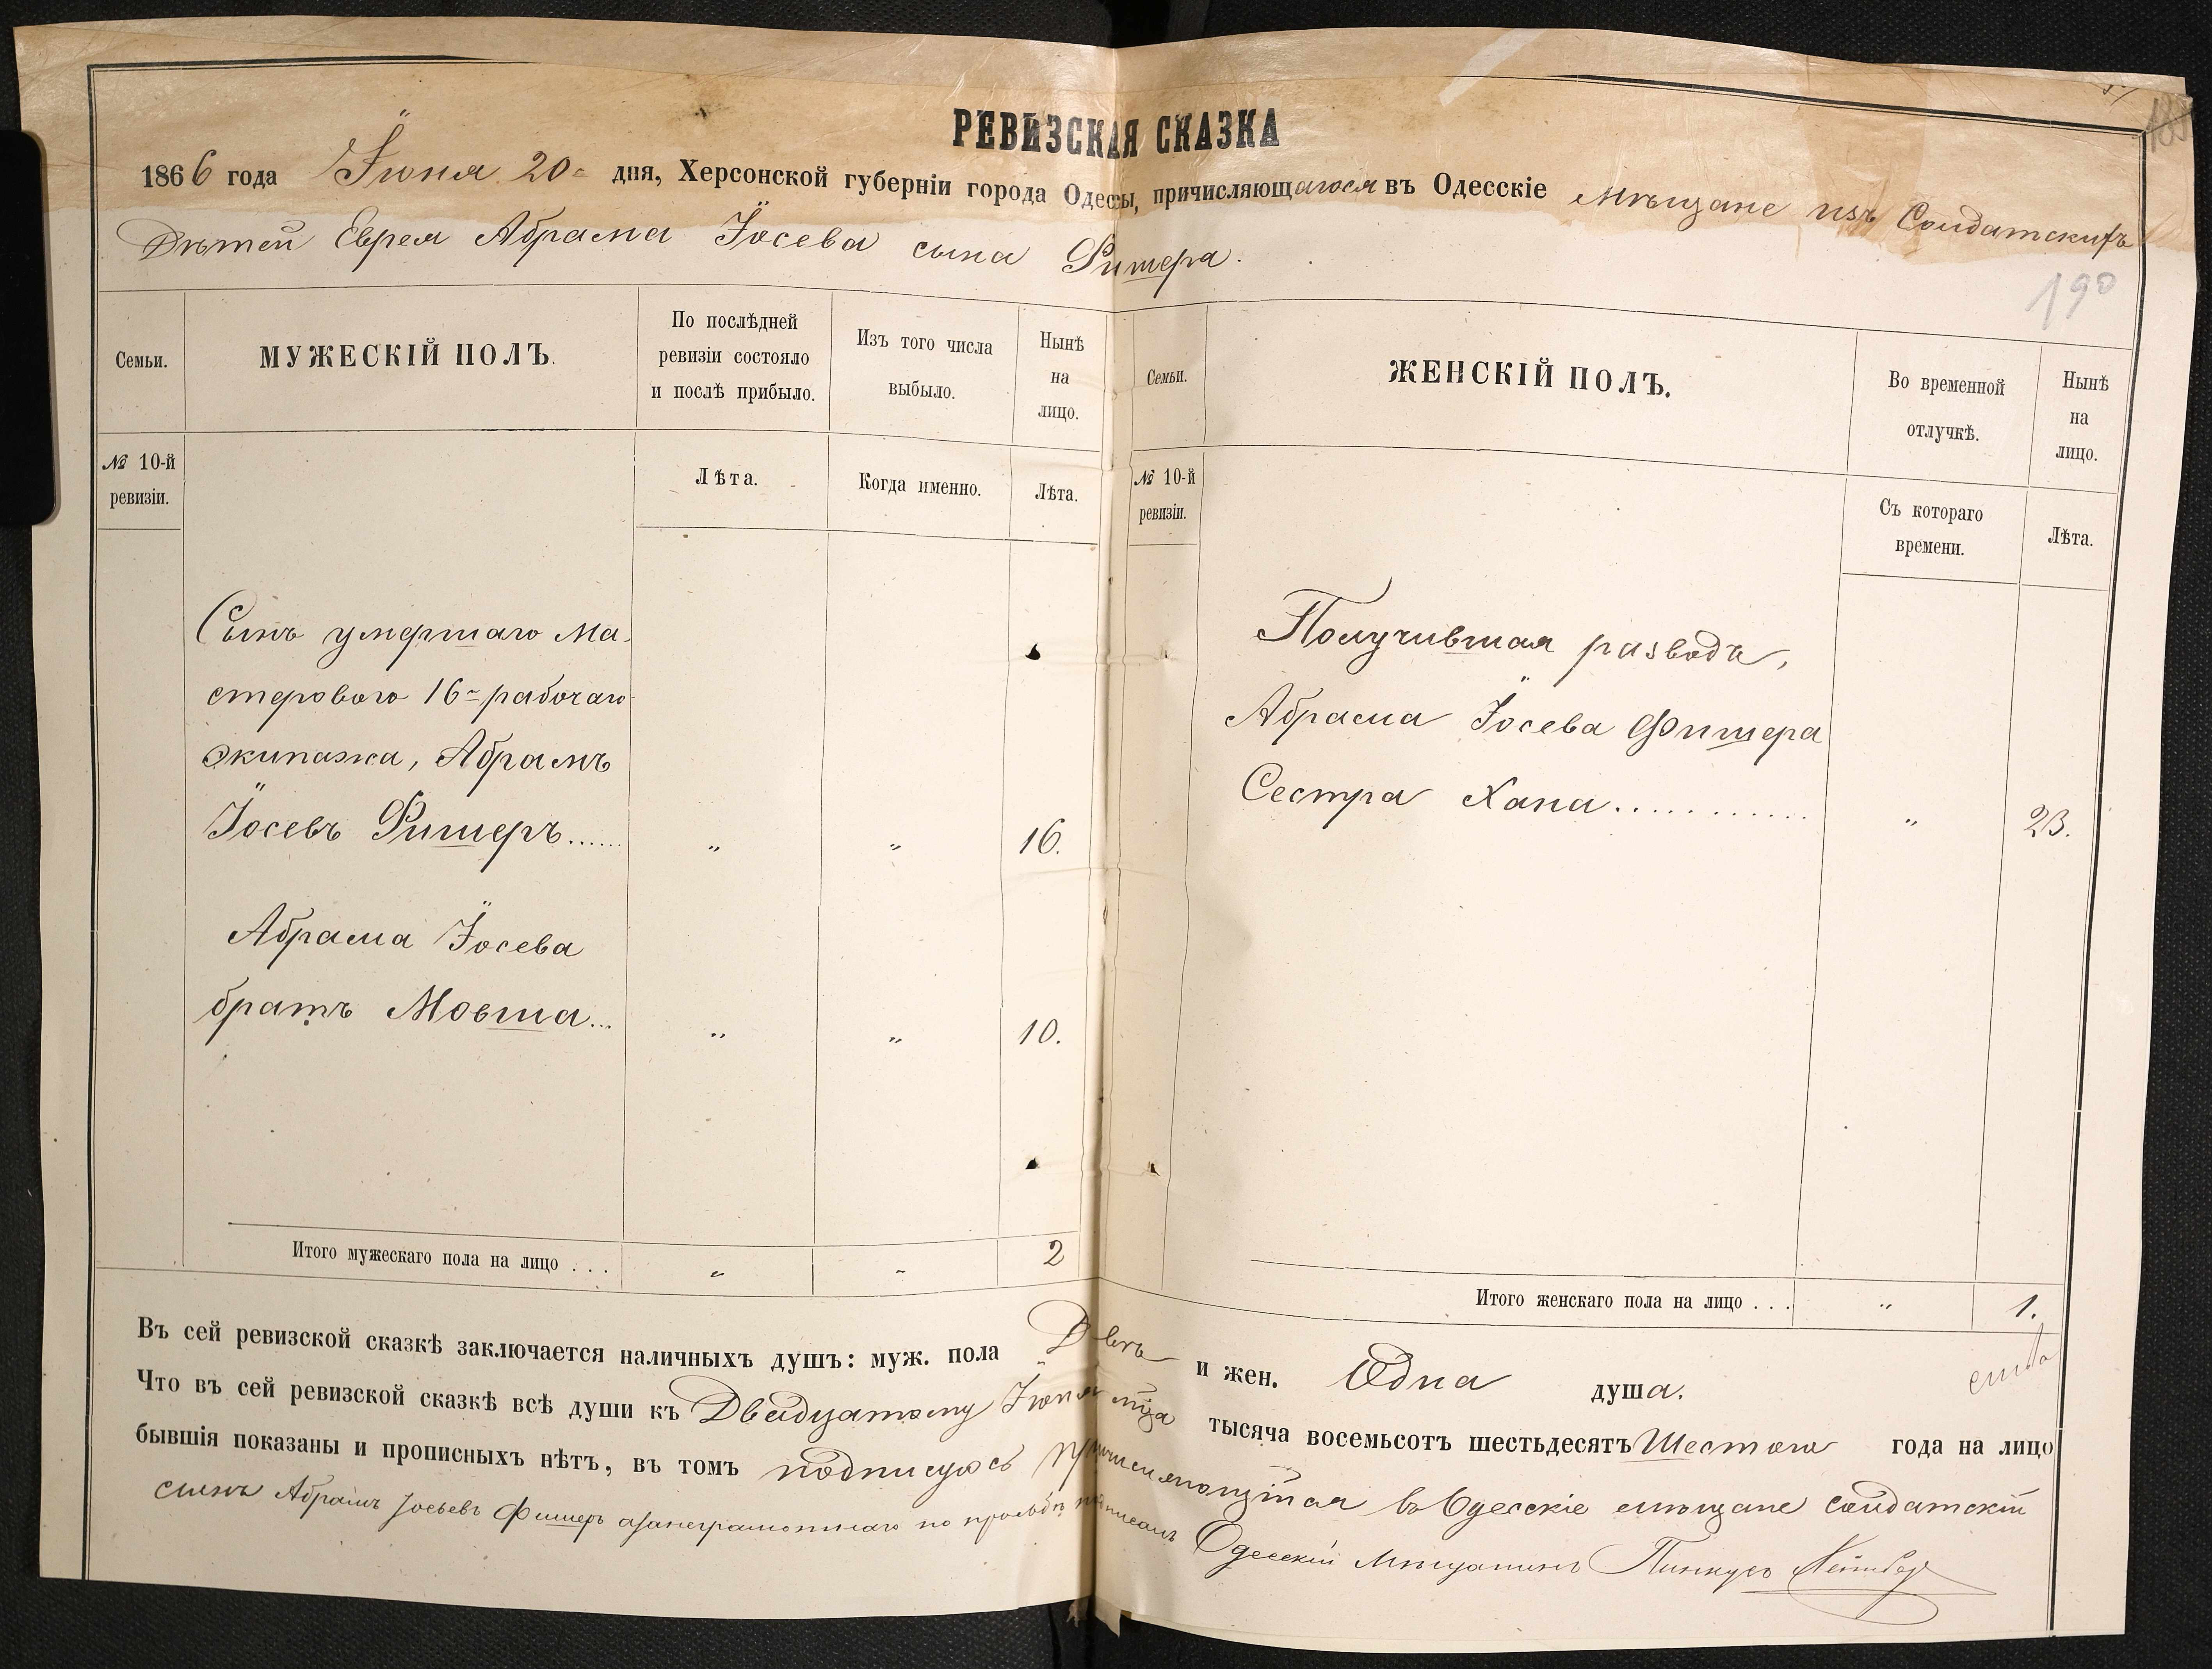 РЕВИЗСКАЯ СКАЗКА
1866 года Іюня 20 дня, Херсонской губерніи города Одессы, причисляющагося въ Одесскіе Мѣщане изъ Солдатскихъ
Дѣтей Еврея Абрама Іосева сына Фишера.
190
Семьи.
МУЖЕСКІЙ ПОЛЪ.
По послѣдней ревизіи состояло и послѣ прибыло.
Изъ того числа выбыло.
Нынѣ на лицо.
Семьи.
ЖЕНСКІЙ ПОЛЪ.
Во временной отлучкѣ.
Нынѣ на лицо.
№ 10-й ревизіи.
Лѣта.
Когда именно.
Лѣта.
№ 10-й ревизіи.
Съ котораго времени.
Лѣта.
Сынъ умершаго Ма-
стероваго 16 рабочаго
экипажа, Абрамъ
Іосевъ Фишеръ...... „ „ 16.
Абрама Іосева
братъ Мовша... „ „ 10.
Итого мужескаго пола на лицо . . . „ „ 2
Получившая разводъ,
Абрама Іосева Фишера
Сестра Хана............ „ 23.
Итого женскаго пола на лицо . . . „ 1.
Въ сей ревизской сказкѣ заключается наличныхъ душъ: муж. пола Двѣ и жен. Одна душа.
Что въ сей ревизской сказкѣ всѣ души къ Двадцатому Іюня мца тысяча восемьсотъ шестьдесятъ Шестого года на лицо
бывшія показаны и прописныхъ нѣтъ, въ томъ подписуюсь причисляющійся въ Одесскіе мѣщане солдатскій
сынъ Абрамъ Іосьевъ Фишеръ а за неграмотнаго по прозьбѣ подписалъ Одесскій Мѣщанинъ Пинкусъ